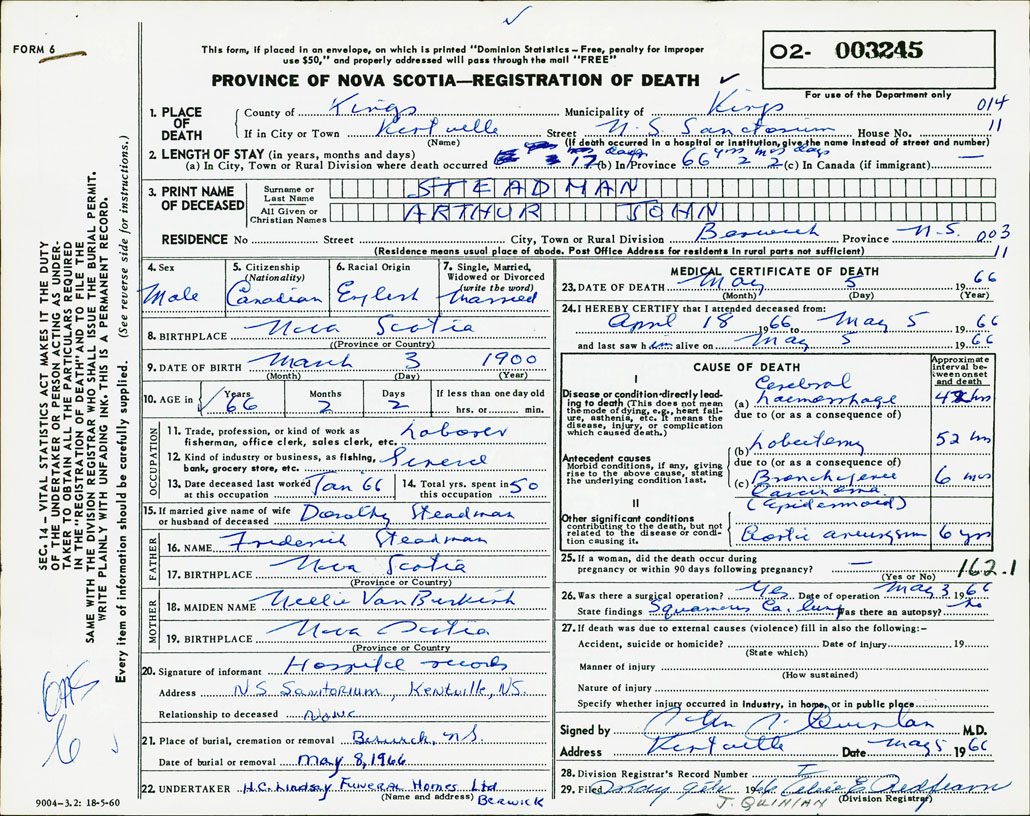 FORM 6
This form, if placed in an envelope, on which is printed "Dominion Statistics – Free, penalty for improper
use $50," and properly addressed will pass through the mail "FREE"
PROVINCE OF NOVA SCOTIA—REGISTRATION OF DEATH
02- 003245
For use of the Department only
1. PLACE OF DEATH
County of Kings Municipality of Kings 014
If in City or Town Kentville Street N.S. Sanctorium House No. 11
(Name) (If death occurred in a hospital or institution, give the name instead of street and number)
2. LENGTH OF STAY (in years, months and days)
(a) In City, Town or Rural Division where death occurred 17 days (b) In Province 66 yrs 2 mos 2 days (c) In Canada (if immigrant) —
3. PRINT NAME OF DECEASED
Surname or Last Name STEADMAN
All Given or Christian Names ARTHUR JOHN
RESIDENCE No Street City, Town or Rural Division Berwick Province N.S. 003
(Residence means usual place of abode. Post Office Address for residents in rural parts not sufficient) 11
4. Sex Male
5. Citizenship (Nationality) Canadian
6. Racial Origin English
7. Single, Married, Widowed or Divorced (write the word) Married
8. BIRTHPLACE Nova Scotia
(Province or Country)
9. DATE OF BIRTH March 3 1900
(Month) (Day) (Year)
10. AGE in Years 66 Months 2 Days 2 If less than one day old
hrs. or min.
OCCUPATION
11. Trade, profession, or kind of work as
fisherman, office clerk, sales clerk, etc. Laborer
12. Kind of industry or business, as fishing,
bank, grocery store, etc. General
13. Date deceased last worked at this occupation Jan 66
14. Total yrs. spent in this occupation 50
15. If married give name of wife
or husband of deceased Dorothy Steadman
FATHER
16. NAME Frederick Steadman
17. BIRTHPLACE Nova Scotia
(Province or Country)
MOTHER
18. MAIDEN NAME Nellie Van Buskirk
19. BIRTHPLACE Nova Scotia
(Province or Country)
20. Signature of informant Hospital records
Address NS Sanitorium, Kentville, NS.
Relationship to deceased None
21. Place of burial, cremation or removal Berwick, NS.
Date of burial or removal May 8, 1966
22. UNDERTAKER H.C. Lindsay Funeral Homes Ltd
(Name and address) Berwick
9004-3.2: 18-5-60
MEDICAL CERTIFICATE OF DEATH
23. DATE OF DEATH May 5 1966
(Month) (Day) (Year)
24. I HEREBY CERTIFY that I attended deceased from:
April 18 1966 to May 5 1966
and last saw him alive on May 5 1966
CAUSE OF DEATH
Approximate interval between onset and death
I
Disease or condition directly leading to death (This does not mean the mode of dying, e.g., heart failure, asthenia, etc. It means the disease, injury, or complication which caused death.)
(a) Cerebral haemorrhage
due to (or as a consequence of)
(b) Lobectomy 52 hrs
Antecedent causes
Morbid conditions, if any, giving rise to the above cause, stating the underlying condition last.
due to (or as a consequence of)
(c) Bronchogenic Carcinoma (Epidermoid) 6 mos
II
Other significant conditions
contributing to the death, but not related to the disease or condition causing it.
Aortic aneurysm 6 yrs
25. If a woman, did the death occur during
pregnancy or within 90 days following pregnancy? —
(Yes or No) 162.1
26. Was there a surgical operation? Yes Date of operation May 3 1966
State findings Squamous Ca. lung Was there an autopsy? no
27. If death was due to external causes (violence) fill in also the following:-
Accident, suicide or homicide? Date of injury 19
(State which)
Manner of injury
(How sustained)
Nature of injury
Specify whether injury occurred in industry, in home, or in public place
Signed by J. Quinlan M.D.
Address Kentville Date May 5 1966
28. Division Registrar's Record Number
29. Filed May 9th 1966
(Division Registrar)
J. QUINLAN
SEC. 14 – VITAL STATISTICS ACT MAKES IT THE DUTY
OF THE UNDERTAKER OR PERSON ACTING AS UNDER-
TAKER TO OBTAIN ALL THE PARTICULARS REQUIRED
IN THE "REGISTRATION OF DEATH" AND TO FILE THE
SAME WITH THE DIVISION REGISTRAR WHO SHALL ISSUE THE BURIAL PERMIT.
WRITE PLAINLY WITH UNFADING INK. THIS IS A PERMANENT RECORD.
Every item of information should be carefully supplied. (See reverse side for instructions.)